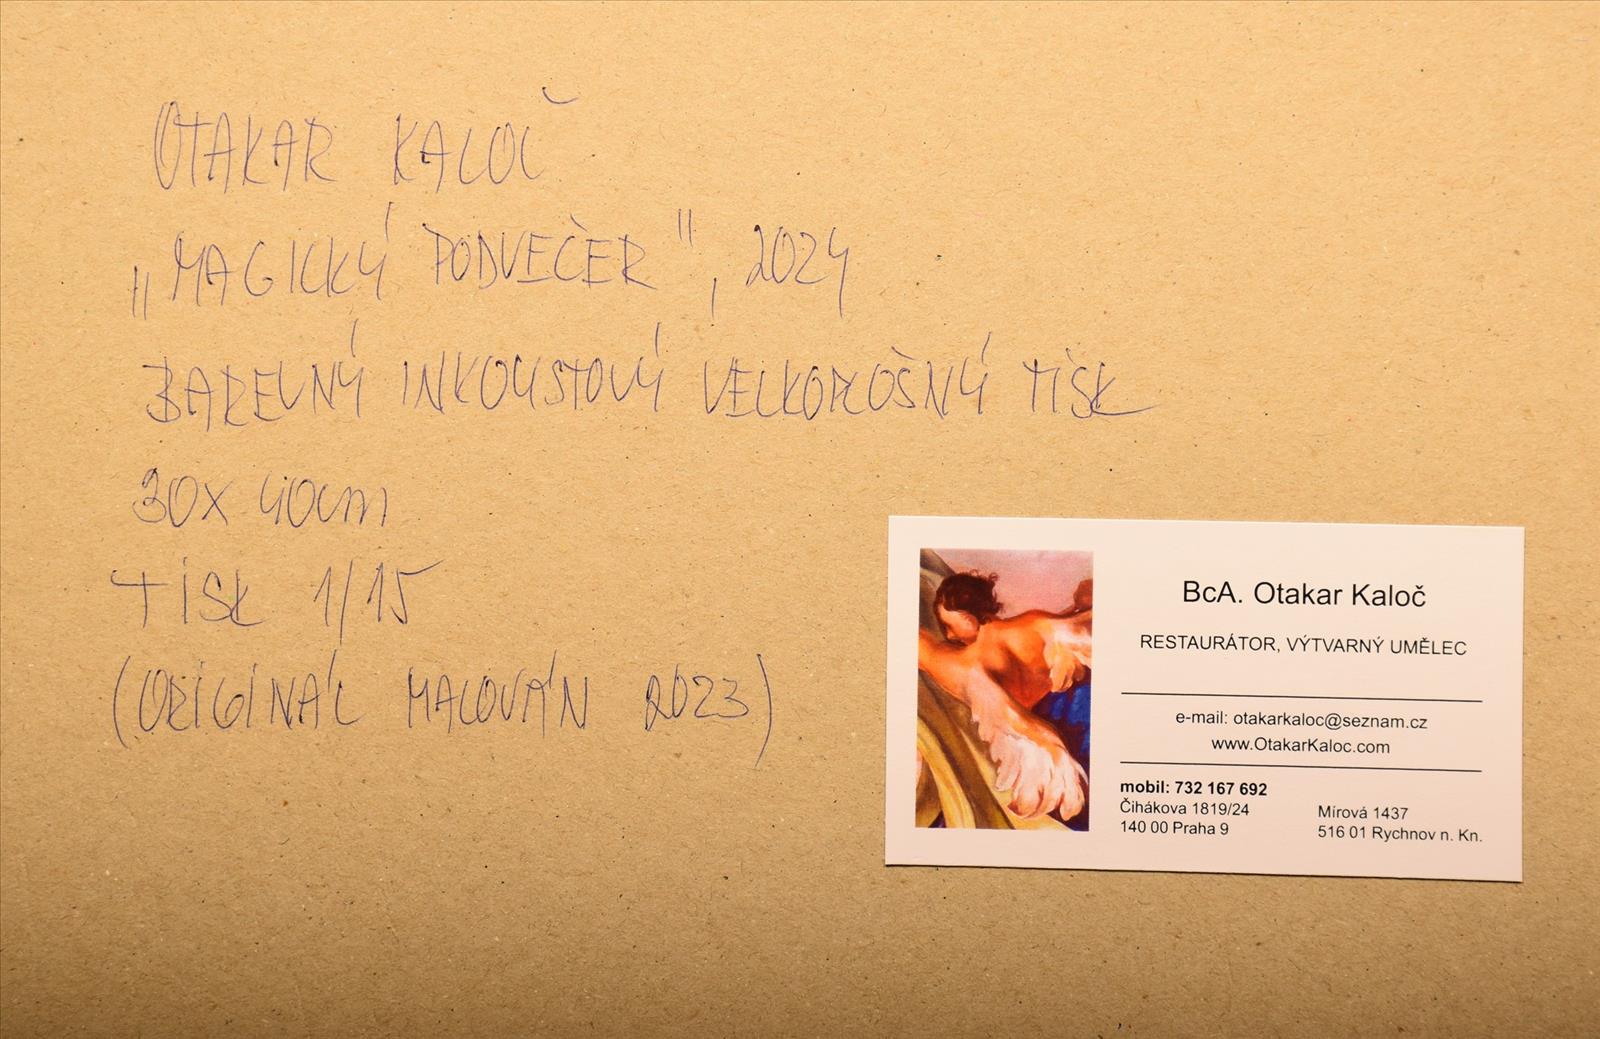 OTAKAR KALOČ
„MAGICKÝ PODVEČER", 2024
BAREVNÝ INKOUSTOVÝ VELKOPLOŠNÝ TISK
30x 40cm
TISK 1/15
(ORIGINÁL MALOVÁN 2023)
BcA. Otakar Kaloč
RESTAURÁTOR, VÝTVARNÝ UMĚLEC
e-mail: otakarkaloc@seznam.cz
www.OtakarKaloc.com
mobil: 732 167 692
Čihákova 1819/24
140 00 Praha 9
Mírová 1437
516 01 Rychnov n. Kn.